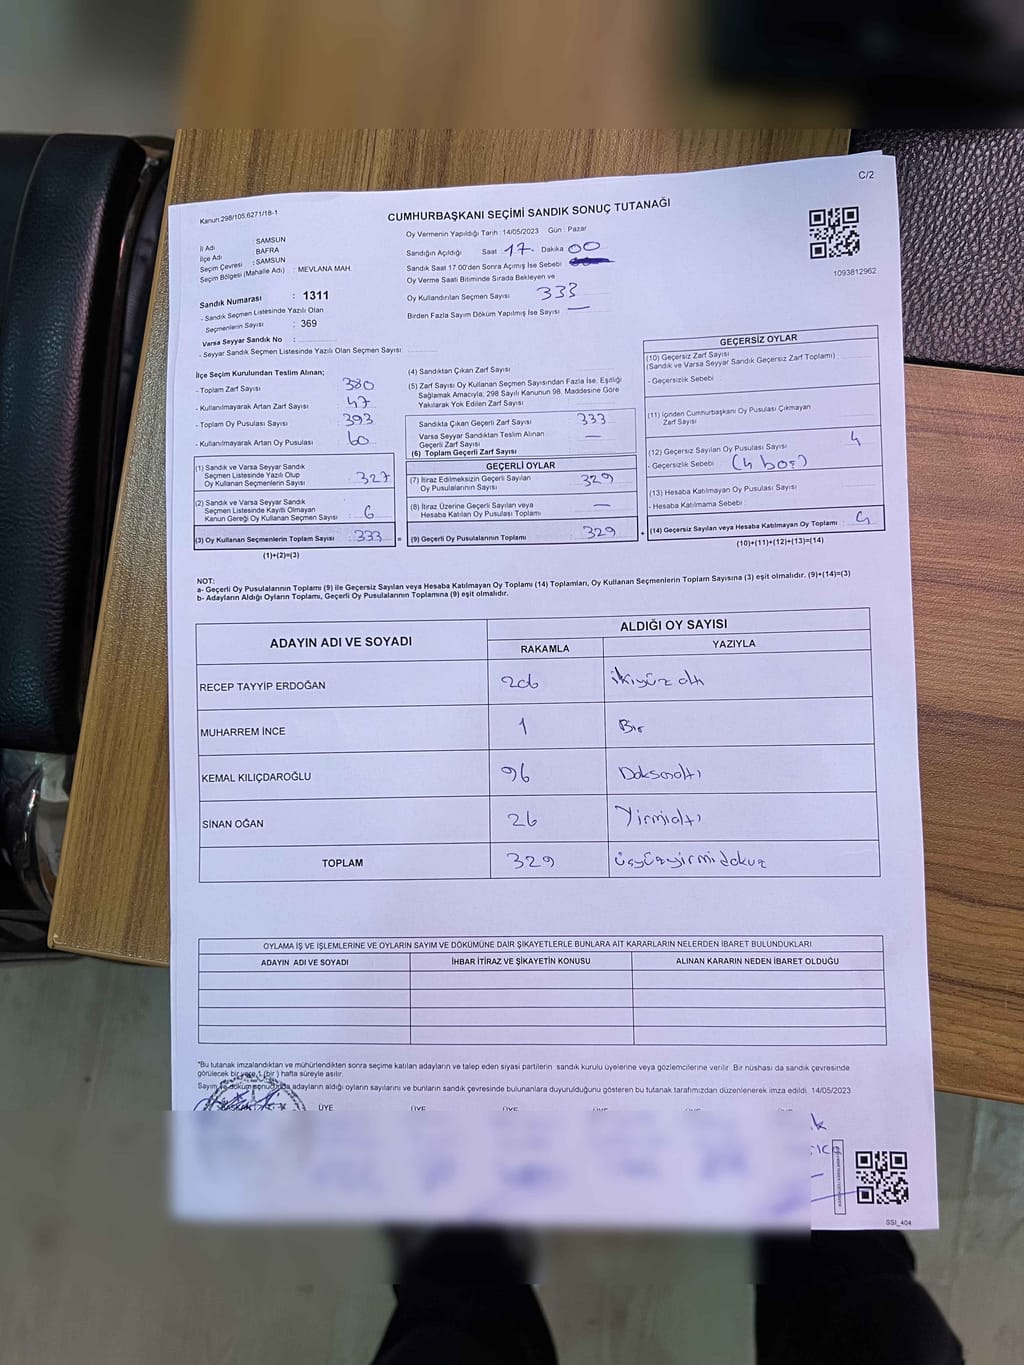 C/2
Kanun:298/105,6271/18-1
CUMHURBAŞKANI SEÇİMİ SANDIK SONUÇ TUTANAĞI
Oy Vermenin Yapıldığı Tarih : 14/05/2023 Gün : Pazar
İl Adı : SAMSUN
İlçe Adı : BAFRA
Seçim Çevresi : SAMSUN
Seçim Bölgesi (Mahalle Adı) : MEVLANA MAH.
Sandığın Açıldığı Saat : 17. Dakika 00
Sandık Saat 17:00'den Sonra Açımış İse Sebebi
Oy Verme Saati Bitiminde Sırada Bekleyen ve
Oy Kullandırılan Seçmen Sayısı 333
Birden Fazla Sayım Döküm Yapılmış İse Sayısı —
1093812962
Sandık Numarası : 1311
- Sandık Seçmen Listesinde Yazılı Olan
Seçmenlerin Sayısı : 369
Varsa Seyyar Sandık No :
- Seyyar Sandık Seçmen Listesinde Yazılı Olan Seçmen Sayısı:
İlçe Seçim Kurulundan Teslim Alınan;
- Toplam Zarf Sayısı 380
- Kullanılmayarak Artan Zarf Sayısı 47
- Toplam Oy Pusulası Sayısı 393
- Kullanılmayarak Artan Oy Pusulası 60
(1) Sandık ve Varsa Seyyar Sandık
Seçmen Listesinde Yazılı Olup
Oy Kullanan Seçmenlerin Sayısı : 327
(2) Sandık ve Varsa Seyyar Sandık
Seçmen Listesinde Kayıtlı Olmayan
Kanun Gereği Oy Kullanan Seçmen Sayısı : 6
(3) Oy Kullanan Seçmenlerin Toplam Sayısı : 333 =
(1)+(2)=(3)
(4) Sandıktan Çıkan Zarf Sayısı
(5) Zarf Sayısı Oy Kullanan Seçmen Sayısından Fazla İse, Eşitliği
Sağlamak Amacıyla; 298 Sayılı Kanunun 98. Maddesine Göre
Yakılarak Yok Edilen Zarf Sayısı
Sandıkta Çıkan Geçerli Zarf Sayısı : 333
Varsa Seyyar Sandıktan Teslim Alınan
Geçerli Zarf Sayısı : —
(6) Toplam Geçerli Zarf Sayısı
GEÇERLİ OYLAR
(7) İtiraz Edilmeksizin Geçerli Sayılan
Oy Pusulalarının Sayısı : 329
(8) İtiraz Üzerine Geçerli Sayılan veya
Hesaba Katılan Oy Pusulası Toplamı : —
(9) Geçerli Oy Pusulalarının Toplamı : 329 +
GEÇERSİZ OYLAR
(10) Geçersiz Zarf Sayısı
(Sandık ve Varsa Seyyar Sandık Geçersiz Zarf Toplamı) :
- Geçersizlik Sebebi :
(11) İçinden Cumhurbaşkanı Oy Pusulası Çıkmayan
Zarf Sayısı
(12) Geçersiz Sayılan Oy Pusulası Sayısı : 4
- Geçersizlik Sebebi : (4 boş)
(13) Hesaba Katılmayan Oy Pusulası Sayısı
- Hesaba Katılmama Sebebi :
(14) Geçersiz Sayılan veya Hesaba Katılmayan Oy Toplamı : 4
(10)+(11)+(12)+(13)=(14)
NOT:
a- Geçerli Oy Pusulalarının Toplamı (9) ile Geçersiz Sayılan veya Hesaba Katılmayan Oy Toplamı (14) Toplamları, Oy Kullanan Seçmenlerin Toplam Sayısına (3) eşit olmalıdır. (9)+(14)=(3)
b- Adayların Aldığı Oyların Toplamı, Geçerli Oy Pusulalarının Toplamına (9) eşit olmalıdır.
ADAYIN ADI VE SOYADI
ALDIĞI OY SAYISI
RAKAMLA YAZIYLA
RECEP TAYYİP ERDOĞAN 206 ikiyüz altı
MUHARREM İNCE 1 Bir
KEMAL KILIÇDAROĞLU 96 Doksanaltı
SİNAN OĞAN 26 Yirmialtı
TOPLAM 329 üçyüzyirmidokuz
OYLAMA İŞ VE İŞLEMLERİNE VE OYLARIN SAYIM VE DÖKÜMÜNE DAİR ŞİKAYETLERLE BUNLARA AİT KARARLARIN NELERDEN İBARET BULUNDUKLARI
ADAYIN ADI VE SOYADI İHBAR İTİRAZ VE ŞİKAYETİN KONUSU ALINAN KARARIN NEDEN İBARET OLDUĞU
*Bu tutanak imzalandıktan ve mühürlendikten sonra seçime katılan adayların ve talep eden siyasi partilerin sandık kurulu üyelerine veya gözlemcilerine verilir. Bir nüshası da sandık çevresinde
görülecek bir yere 1 (bir) hafta süreyle asılır.
Sayım ve döküm sonucunda adayların aldığı oyların sayılarını ve bunların sandık çevresinde bulunanlara duyurulduğunu gösteren bu tutanak tarafımızdan düzenlenerek imza edildi. 14/05/2023
BAŞKAN ÜYE ÜYE ÜYE
SSI_404